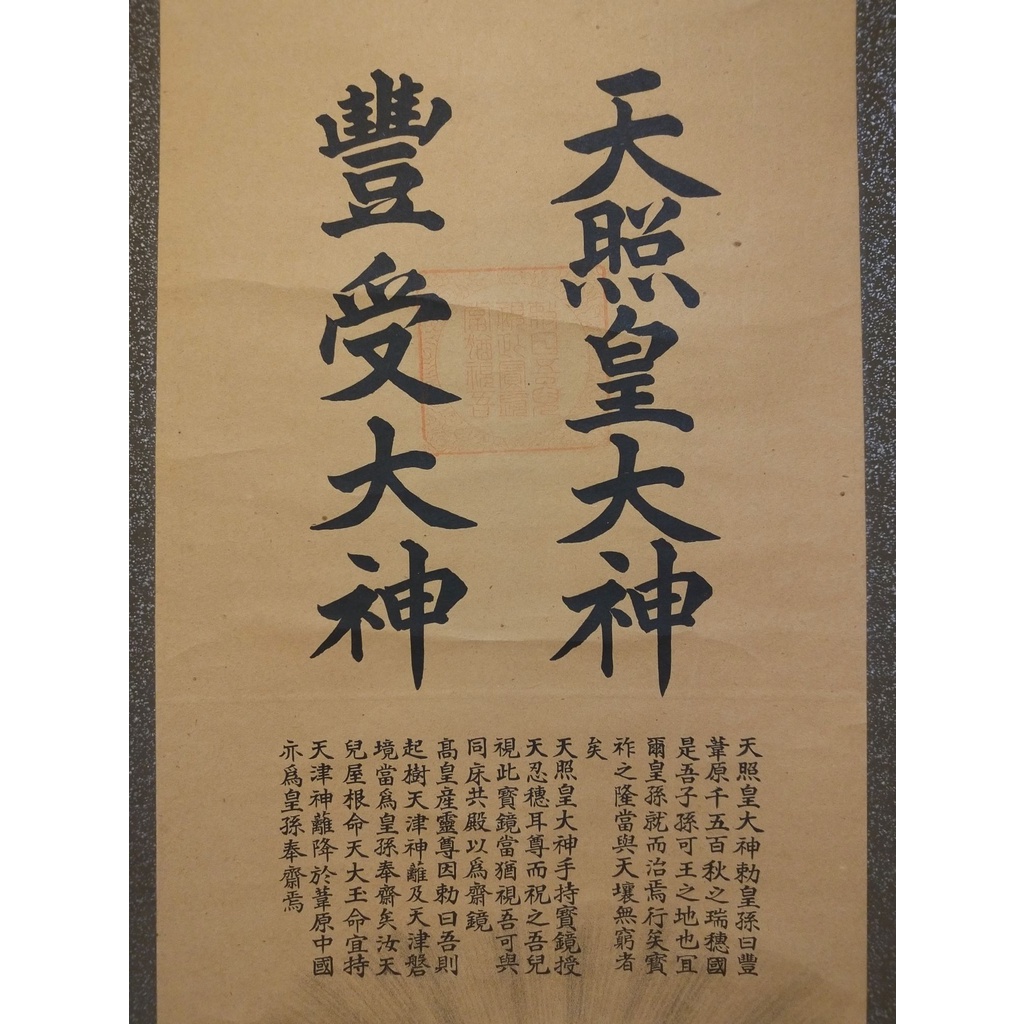 天照皇大神
豐受大神
天照皇大神勅皇孫曰豐
葦原千五百秋之瑞穗國
是吾子孫可王之地也冝
爾皇孫就而治焉行矣寳
祚之隆當與天壤無窮者
矣
天照皇大神手持寳鏡授
天忍穗耳尊而祝之吾兒
視此寳鏡當猶視吾可與
同床共殿以爲齋鏡
髙皇産靈尊因勅曰吾則
起樹天津神蘺及天津磐
境當爲皇孫奉齋矣汝天
兒屋根命天大玉命宜持
天津神蘺降於葦原中國
亦爲皇孫奉齋焉